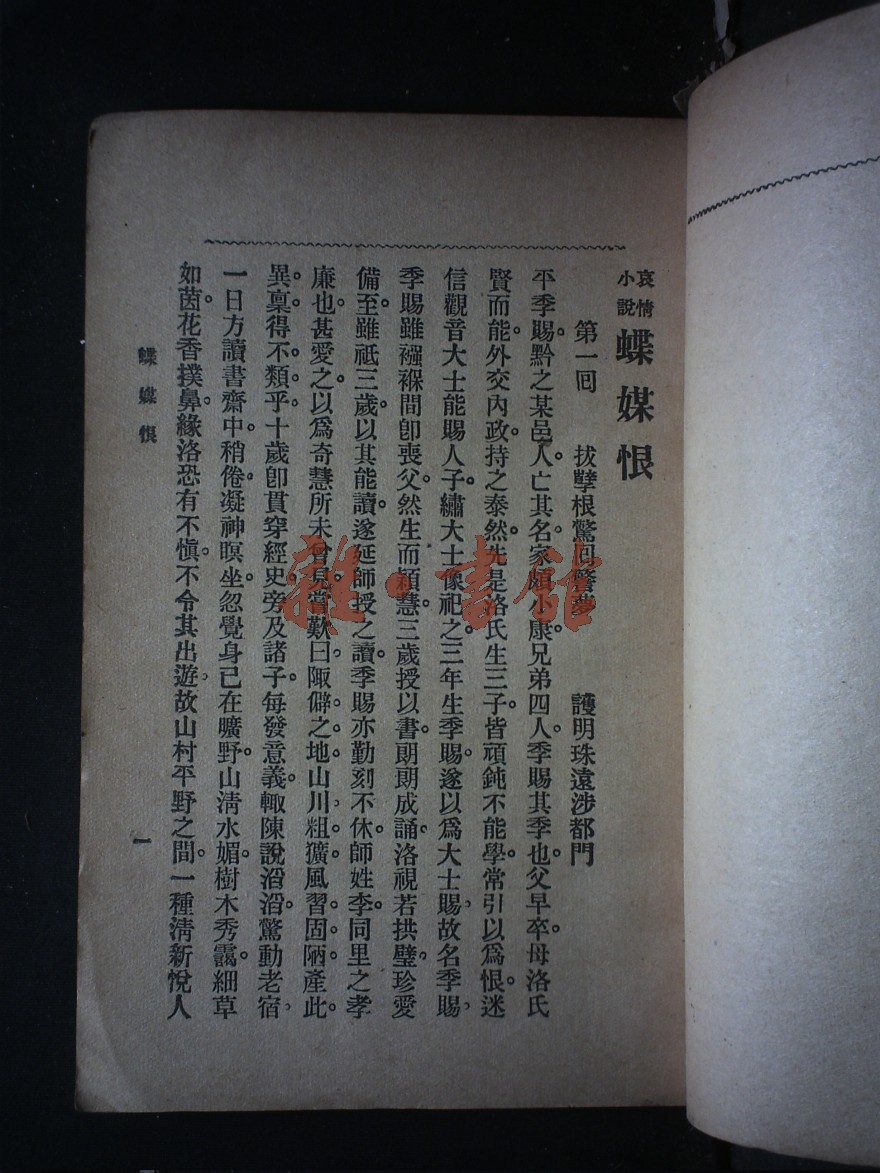 哀情小說 蝶媒恨
第一回 拔孽根驚回警夢 護明珠遠涉都門
平季賜。黔之某邑人。亡其名。家頗小康。兄弟四人。季賜其季也。父早卒。母洛氏
賢而能。外交內政。持之泰然。先是洛氏生三子。皆頑鈍不能學。常引以爲恨。迷
信觀音大士能賜人子。繡大士像祀之。三年生季賜。遂以爲大士賜。故名季賜。
季賜雖襁褓間卽喪父。然生而穎慧。三歲授以書。朗朗成誦。洛視若拱璧。珍愛
備至。雖祇三歲。以其能讀。遂延師授之讀。季賜亦勤刻不休。師姓李。同里之孝
廉也。甚愛之。以爲奇慧所未曾見。嘗歎曰。陬僻之地。山川粗獷。風習固陋。產此
異稟。得不類乎。十歲卽貫穿經史。旁及諸子。每發意義。輒陳說滔滔。驚動老宿。
一日方讀書齋中。稍倦。凝神瞑坐。忽覺身已在曠野。山淸水媚。樹木秀靄。細草
如茵。花香撲鼻。緣洛恐有不愼。不令其出遊。故山村平野之間。一種淸新悅人
蝶媒恨
一
雜·書館